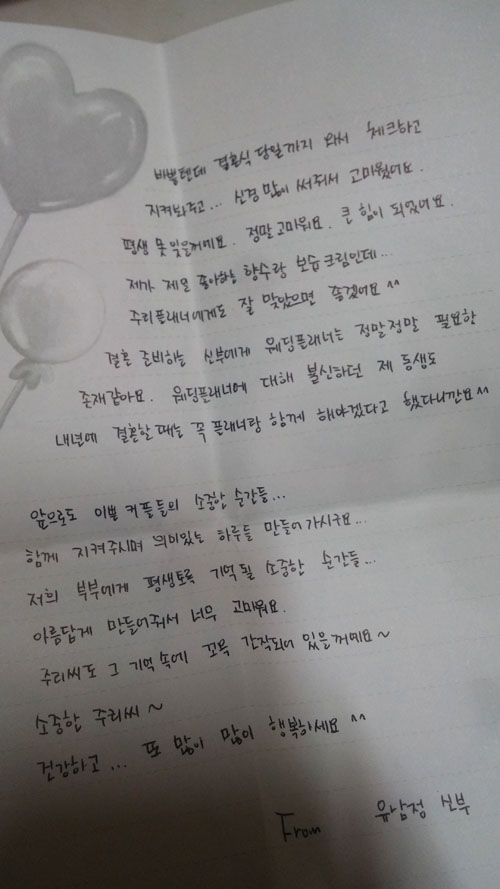 바쁠텐데 결혼식 당일까지 와서 체크하고
지켜봐주고... 신경 많이 써줘서 고마웠어요.
평생 못 잊을꺼예요. 정말 고마워요. 큰 힘이 되었어요.
제가 제일 좋아하는 향수랑 보습크림인데...
주리플래너에게도 잘 맞았으면 좋겠어요^^
결혼 준비하는 신부에게 웨딩플래너는 정말정말 필요한
존재같아요. 웨딩플래너에 대해 불신하던 제 동생도
내년에 결혼할때는 꼭 플래너랑 함께 해야겠다고 했다니깐요^^
앞으로도 이쁠 커플들의 소중한 순간들...
함께 지켜주시며 의미있는 하루들 만들어가시구요...
저희 부부에게 평생토록 기억될 소중한 순간들...
아름답게 만들어줘서 너무 고마워요.
주리씨도 그 기억속에 꼬옥 간직되어 있을꺼예요~
소중한 주리씨~
건강하고... 또 많이 많이 행복하세요^^
From 유남정 신부